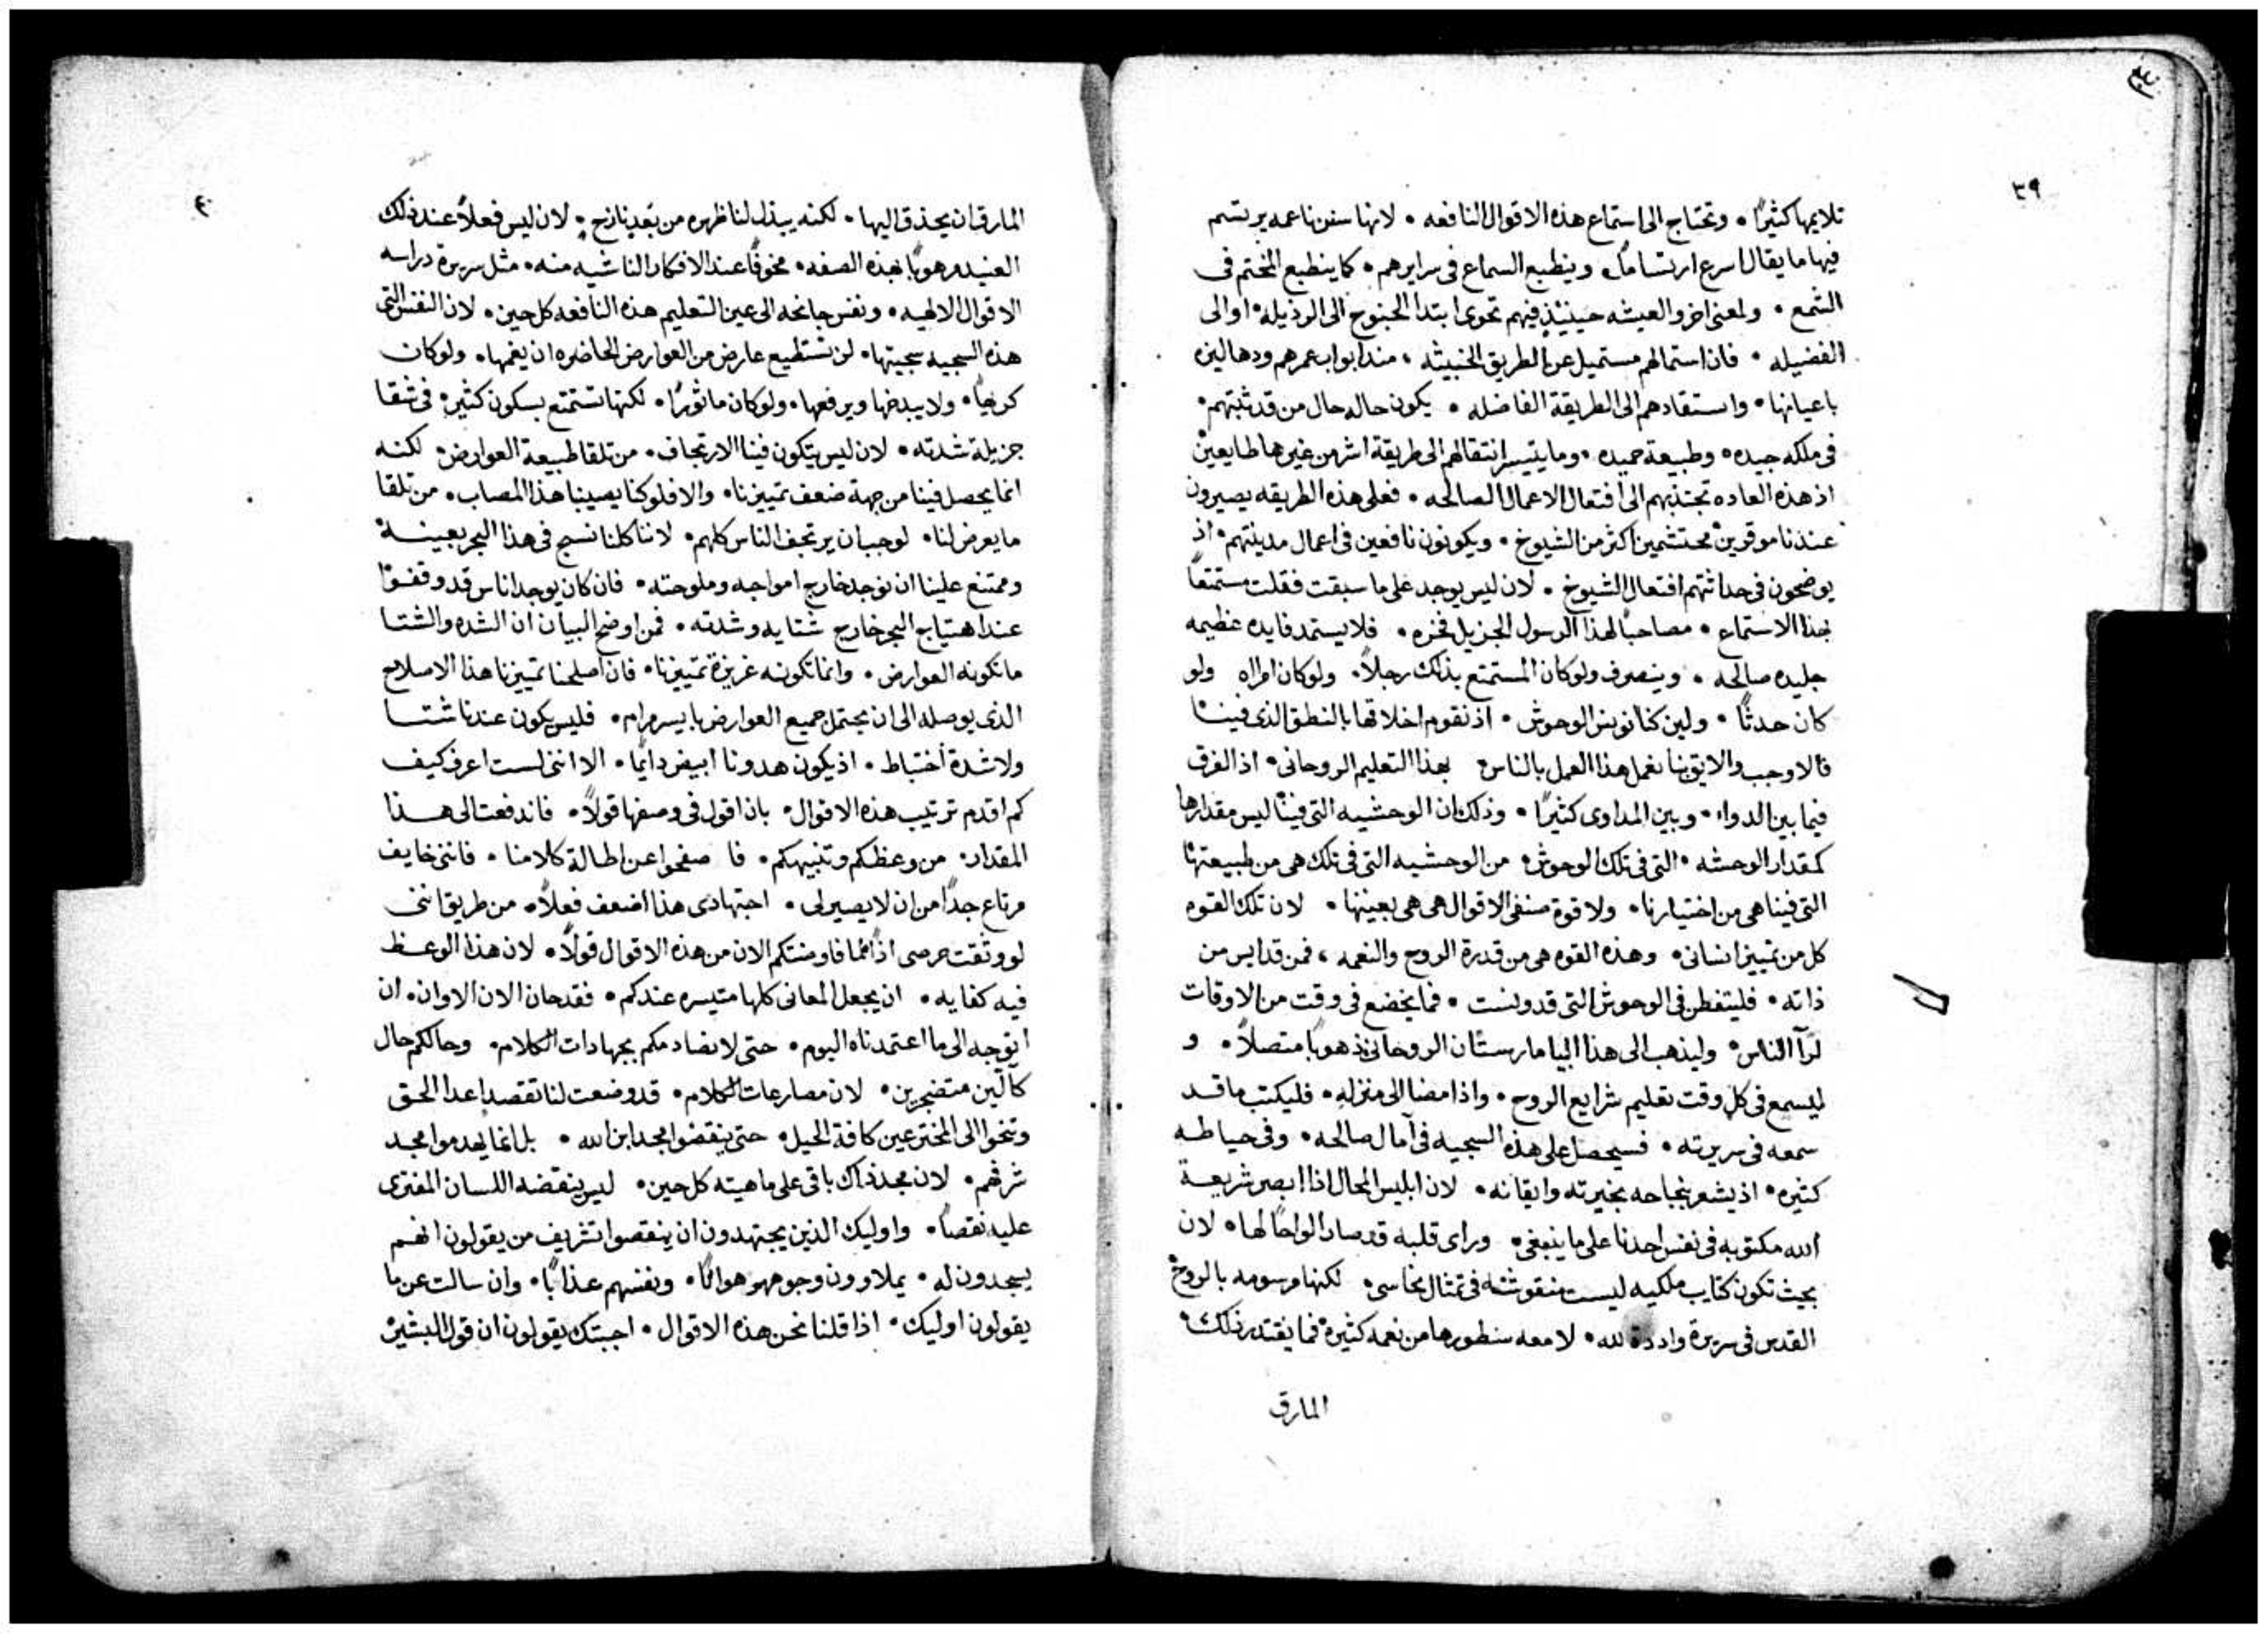 ٣٩
تلايمها كثيرًا • وتحتاج الى استماع هذه الاقوال النافعه • لانها سفن ناعمه يرتسم
فيها ما يقال اسرع ارتسامًا • وينطبع السماع في سرايرهم • كما ينطبع الختم في
الشمع • ولمعنى اخر والعيشه حينيذٍ فيهم تحوى ابتدا الجنوح الى الرذيله • او الى
الفضيله • فان استمالهم مستميل عن الطريق الخبيثه • منذ ابواب عمرهم ودهاليزه
باعيانها • واستقادهم الى الطريقة الفاضله • يكون حاله حال من قد ثبتهم •
في ملكه جيده • وطبيعة حميده • وما يتيسر انتقالهم الى طريقة اشر من غيرها طايعين
اذ هذه العاده تجتذبهم الى افتعال الاعمال الصالحه • فعلى هذه الطريقه يصيرون
عندنا موقرين محتشمين اكثر من الشيوخ • ويكونون نافعين في اعمال مدينتهم • اذ
يوضحون في حداثتهم افتعال الشيوخ • لان ليس يوجد على ما سبقت فقلت مستمتعًا
بهذا الاستماع • مصاحبًا لهذا الرسول الجزيل فخره • فلا يستمد فايده عظيمه
جليده صالحه • وينصرف ولو كان المستمتع بذلك رجلاً • ولو كان امراه ولو
كان حدثًا • ولين كنا نونس الوحوش • اذ نقوم اخلاقها بالنطق الذى فينا
فالاوجب والاليق بنا نعمل هذا العمل بالناس بهذا التعليم الروحانى • اذ الفرق
فيما بين الدواء • وبين المداوى كثيرًا • وذلك ان الوحشيه التى فينا ليس مقدارها
كمقدار الوحشه • التى في تلك الوحوش من الوحشيه التى في تلك هى من طبيعتها
التى فينا هى من اختيارنا • ولا قوة صنفى الاقوال هى هى بعينها • لان تلك القوه
كل من تمييز انسانى • وهذه القوه هى من قدرة الروح والنعمه ، فمن قد ايس من
ذاته • فليتفطن في الوحوش التى قد ونست • فما يخضع في وقت من الاوقات
لرآ الناس • وليذهب الى هذا البيمارستان الروحانى ذهوبًا متصلاً • و
ليسمع في كل وقت تعليم شرايع الروح • واذا مضا الى منزله • فليكتب ما قد
سمعه في سريرته • فسيحصل على هذه السجيه في آمال صالحه • وفى حياطه
كثيره • اذ يشعر بنجاحه بخيرته وايقانه • لان ابليس المحال اذا ابصر شريعة
الله مكتوبه في نفس احدنا على ما ينبغى • وراى قلبه قد صار الواحًا لها • لان
بحيث تكون كتابه ملكيه ليست منقوشه في تمثال نحاسى • لكنها مرسومه بالروح
القدس في سريرة وادده لله • لامعه سطورها من نعمه كثيرة فما يقتدر ذلك •
المارق
المارق ان يحذق اليها • لكنه يبذل لنا ظهره من بعد نازح • لان ليس فعلاً عند ذلك
العنيد مرهوبًا بهذه الصفه • مخوفًا عند الافكار الناشيه منه • مثل سريرة دراسه
الاقوال الالهيه • ونفس جانحه الى عين التعليم هذه النافعه كل حين • لان النفس التى
هذه السجيه سجيتها • لن تستطيع عارض من العوارض الحاضره ان يغمها • ولو كان
كريهًا • ولا يبذخها ويرفعها • ولو كان ماثورًا • لكنها تستمتع بسكون كثير • في شقا
جزيلة شدته • لان ليس يتكون فينا الارتجاف • من تلقا طبيعة العوارض • لكنه
انما يحصل فينا من جهة ضعف تمييزنا • والا فلو كنا يصيبنا هذا المصاب • من تلقا
ما يعرض لنا • لوجب ان يرتجف الناس كلهم • لاننا كلنا نسبح في هذا البحر بعينه
وممتنع علينا ان نوجد خارج امواجه وملوحته • فان كان يوجد اناس قد وقفوا
عند اهتياج البحر خارج شتايه وشدته • فمن اوضح البيان ان الشده والشتا
ما تكونه العوارض • وانما تكونه غريزة تمييزنا • فان اصلحنا تمييزنا هذا الاصلاح
الذى يوصله الى ان يحتمل جميع العوارض بايسر مرام • فليس يكون عندنا شتا
ولا شدة اختباط • اذ يكون هدونا ابيض دايمًا • الا اننى لست اعرف كيف
كم اقدم ترتيب هذه الاقوال • بان اقول في وصفها قولاً • فاندفعت الى هذا
المقدار • من وعظكم وتنبيهكم • فاصفحوا عن اطالة كلامنا • فاننى خايف
مرتاع جدًا من ان لا يصير لى • اجتهادى هذا اضعف فعلاً • من طريق اننى
لو وثقت حرصى اذًا لما فاوضتكم الان من هذه الاقوال قولاً • لان هذا الوعظ
فيه كفايه • ان يجعل المعانى كلها متيسره عندكم • فقد حان الان الاوان • ان
اتوجه الى ما اعتمدناه اليوم • حتى لا نصادمكم بجهادات الكلام • وحالكم حال
كآلين متضجرين • لان مصارعات الكلام • قد وضعت لنا تقصد اعدا الحق
وتنحوا الى المخترعين كافة الحيل • حتى ينقضوا مجد ابن الله • بل انما يهدموا مجد
شرفهم • لان مجد ذاك باقى على ماهيته كل حين • ليس ينقضه اللسان المفترى
عليه نقصًا • واوليك الذين يجتهدون ان ينقصوا تشريف من يقولون انهم
يسجدون له • يملاوون وجوههم هوانًا • ونفسهم عذابًا • وان سالت عن ما
يقولون اوليك • اذا قلنا نحن هذه الاقوال • اجبتك يقولون ان قول البشير